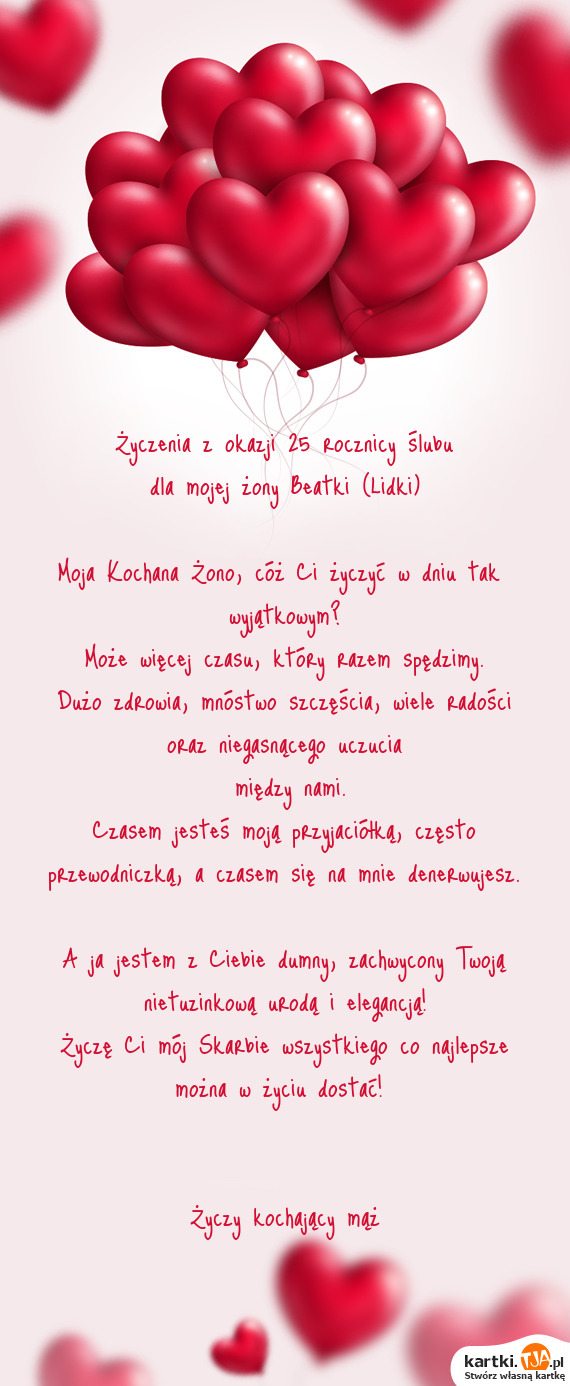 Życzenia z okazji 25 rocznicy ślubu
dla mojej żony Beatki (Lidki)
Moja Kochana Żono, cóż Ci życzyć w dniu tak
wyjątkowym?
Może więcej czasu, który razem spędzimy.
Dużo zdrowia, mnóstwo szczęścia, wiele radości
oraz niegasnącego uczucia
między nami.
Czasem jesteś moją przyjaciółką, często
przewodniczką, a czasem się na mnie denerwujesz.
A ja jestem z Ciebie dumny, zachwycony Twoją
nietuzinkową urodą i elegancją!
Życzę Ci mój Skarbie wszystkiego co najlepsze
można w życiu dostać!
Życzy kochający mąż
kartki.TJA.pl
Stwórz własną kartkę